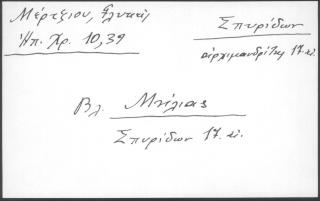 Μέρτζιου, Ηπ. Χρ. 10,39
Σπυρίδων
αρχιμανδρίτης 17. αι.
Βλ. Μήλιας
Σπυρίδων 17. αι.